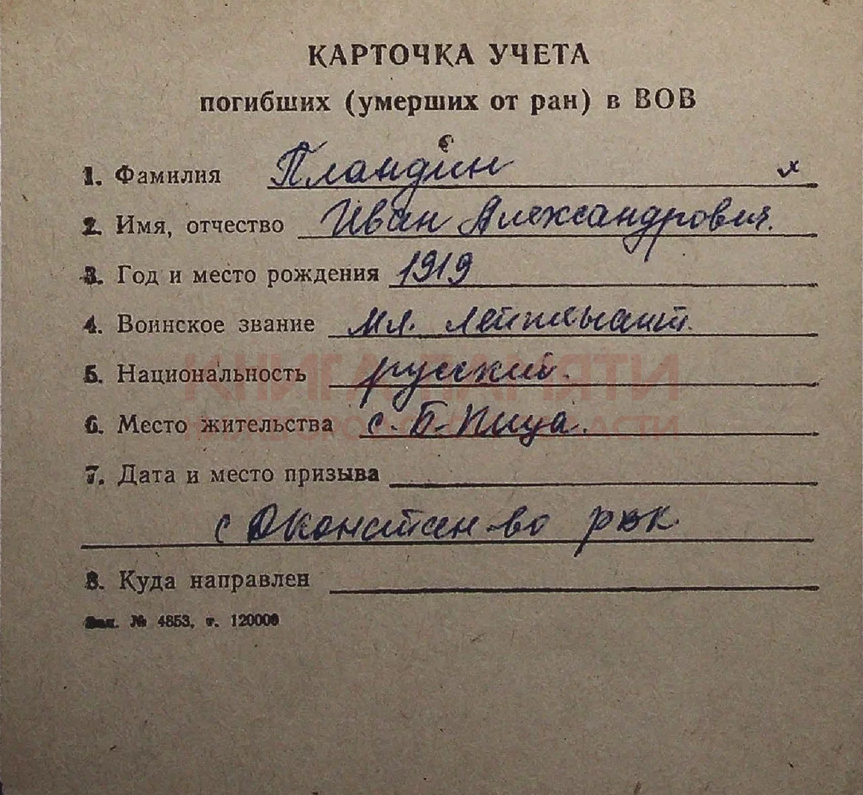 КАРТОЧКА УЧЕТА
погибших (умерших от ран) в ВОВ
1. Фамилия Пландин
2. Имя, отчество Иван Александрович.
3. Год и место рождения 1919
4. Воинское звание мл. лейтенант.
5. Национальность русский.
6. Место жительства с. Б-Пица.
7. Дата и место призыва
с Дконстан-во рвк
8. Куда направлен
Зак. № 4853, т. 120000
КНИГА ПАМЯТИ
НИЖЕГОРОДСКОЙ ОБЛАСТИ